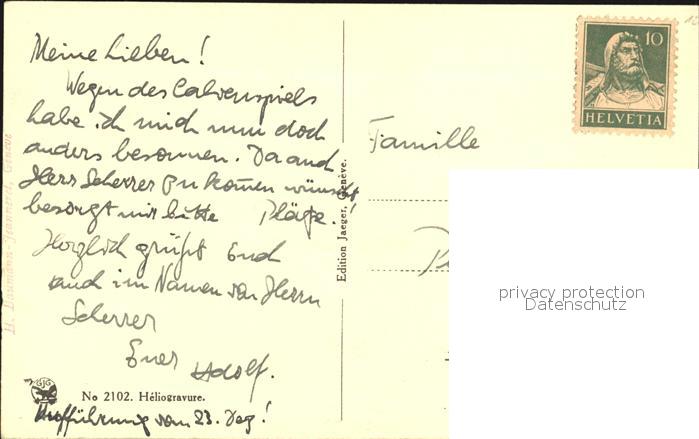 Meine Lieben!
Wegen des Calvenspiels
habe ich mich nun doch
anders besonnen. Da auch
Herr Scherrer zu kommen wünscht
besorgt mir bitte Plätze!
Herzlich grüßt Euch
auch im Namen von Herrn
Scherrer
Euer Adolf.
No 2102. Héliogravure.
Aufführung vom 23.
Edition Jaeger, Genève.
10
HELVETIA
Famille
privacy protection
Datenschutz